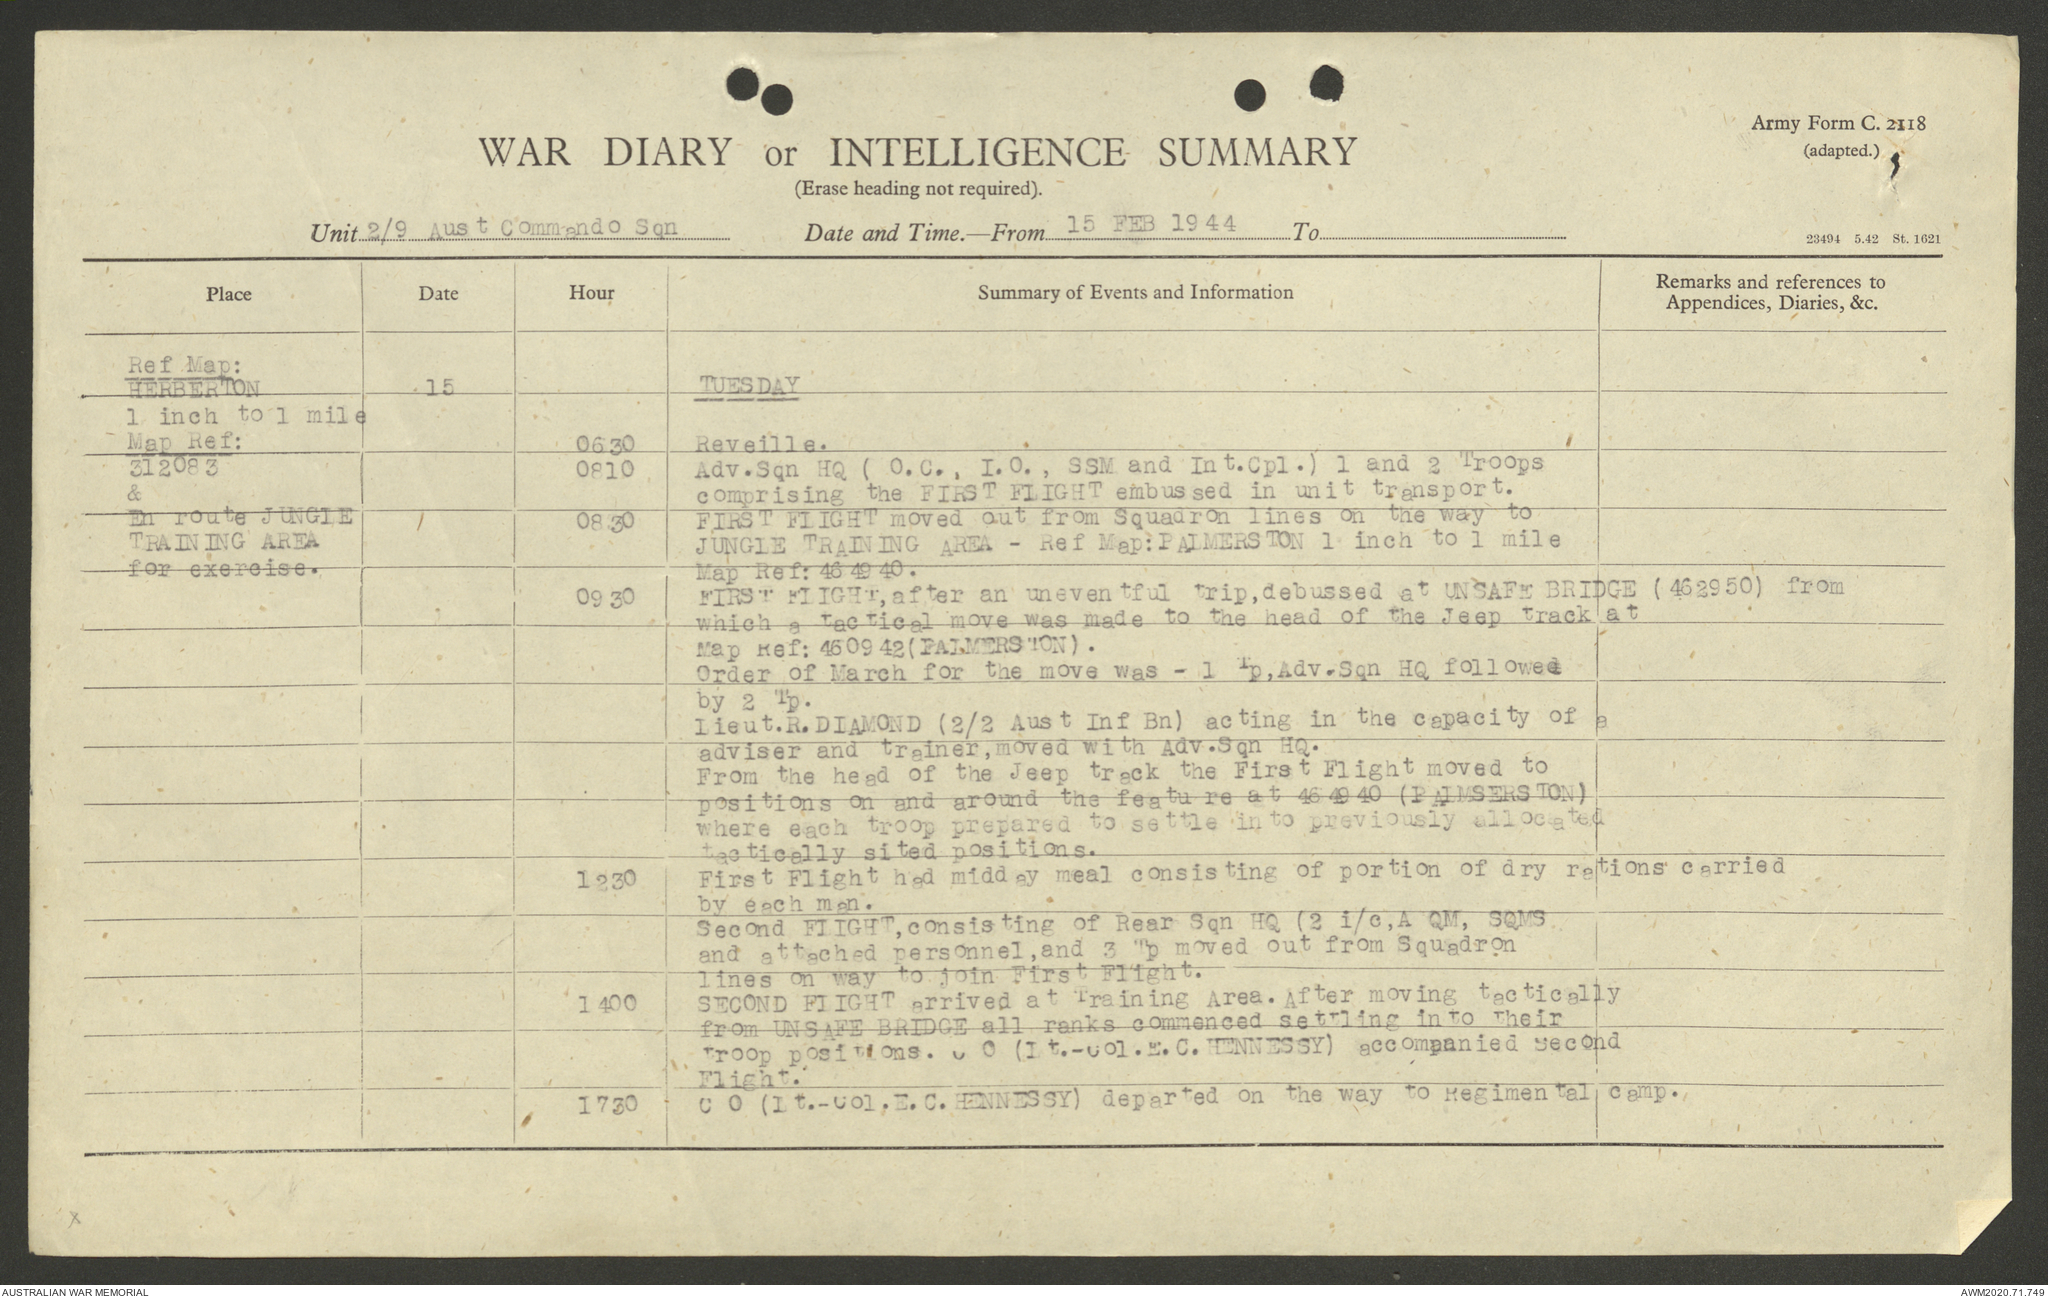 Army Form C. 2118
(adapted.)
WAR DIARY or INTELLIGENCE SUMMARY
(Erase heading not required).
Unit 2/9 Aust Commando Sqn Date and Time.—From 15 FEB 1944 To
23494 5.42 St. 1621
Place Date Hour Summary of Events and Information Remarks and references to
Appendices, Diaries, &c.
Ref Map:
HERBERTON 15 TUESDAY
1 inch to 1 mile
Map Ref: 0630 Reveille.
312083 0810 Adv.Sqn HQ ( O.C., I.O., SSM and Int.Cpl.) 1 and 2 Troops
& comprising the FIRST FLIGHT embussed in unit transport.
En route JUNGLE 0830 FIRST FLIGHT moved out from Squadron lines on the way to
TRAINING AREA JUNGLE TRAINING AREA - Ref Map:PALMERSTON 1 inch to 1 mile
for exercise. Map Ref: 464940.
0930 FIRST FLIGHT,after an uneventful trip,debussed at UNSAFE BRIDGE (462950) from
which a tactical move was made to the head of the Jeep track at
Map Ref: 460942(PALMERSTON).
Order of March for the move was - 1 Tp,Adv.Sqn HQ followed
by 2 Tp.
Lieut.R.DIAMOND (2/2 Aust Inf Bn) acting in the capacity of a
adviser and trainer,moved with Adv.Sqn HQ.
From the head of the Jeep track the First Flight moved to
positions on and around the feature at 464940 (PALMSERSTON)
where each troop prepared to settle into previously allocated
tactically sited positions.
1230 First Flight had midday meal consisting of portion of dry rations carried
by each man.
Second FLIGHT,consisting of Rear Sqn HQ (2 i/c,A QM, SQMS
and attached personnel,and 3 Tp moved out from Squadron
lines on way to join First Flight.
1400 SECOND FLIGHT arrived at Training Area. After moving tactically
from UNSAFE BRIDGE all ranks commenced settling into their
troop positions. C O (Lt.-Col.E.C.HENNESSY) accompanied Second
Flight.
1730 C O (Lt.-Col.E.C.HENNESSY) departed on the way to Regimental camp.
x
AUSTRALIAN WAR MEMORIAL AWM2020.71.749